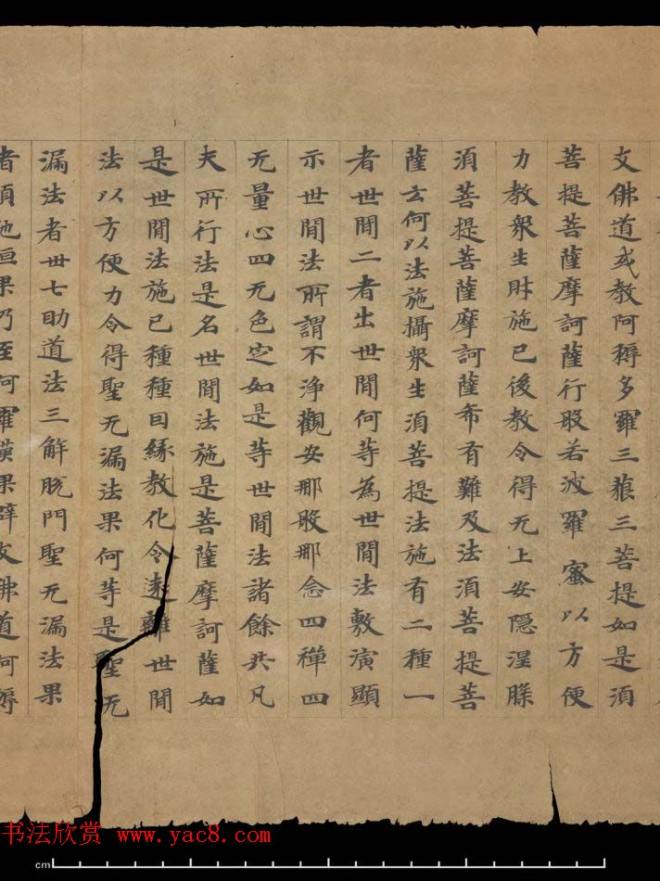 支佛道或教阿耨多羅三藐三菩提如是須
菩提菩薩摩訶薩行般若波羅蜜以方便
力教衆生財施已後教令得无上安隱涅槃
須菩提菩薩摩訶薩希有難及法須菩提菩
薩云何以法施攝衆生須菩提法施有二種一
者世閒二者出世閒何等為世閒法敷演顯
示世閒法所謂不淨觀安那般那念四禪四
无量心四无色定如是等世閒法諸餘共凡
夫所行法是名世閒法施是菩薩摩訶薩如
是世閒法施已種種因緣教化令遠離世閒
法以方便力令得聖无漏法果何等是聖无
漏法者卅七助道法三解脫門聖无漏法果
者須陁洹果乃至阿羅漢果辟支佛道阿耨
书法欣赏 www.yac8.com
cm